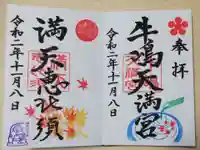 奉拝
牛嶋天満宮
令和二年十一月八日
満天恵比須
令和二年十一月八日